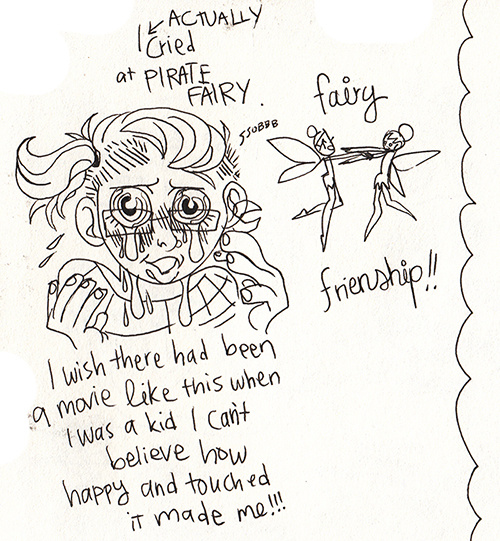 ACTUALLY
I Cried
at PIRATE
FAIRY.
SSOBBB
fairy
frienship!!
I wish there had been
a movie like this when
I was a kid I can't
believe how
happy and touched
it made me!!!